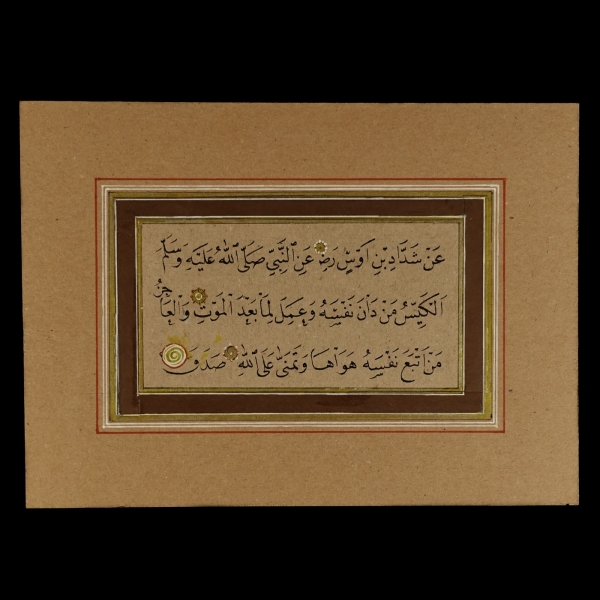 عَنْ شَدَّادِ بْنِ اَوْسٍ رَضِ عَنِ النَّبِيِّ صَلَّى اللهُ عَلَيْهِ وَسَلَّمَ
اَلْكَيِّسُ مَنْ دَانَ نَفْسَهُ وَعَمِلَ لِمَا بَعْدَ الْمَوْتِ وَالْعَاجِزُ
مَنْ اَتْبَعَ نَفْسَهُ هَوَاهَا وَتَمَنَّى عَلَى اللهِ صَدَقَ